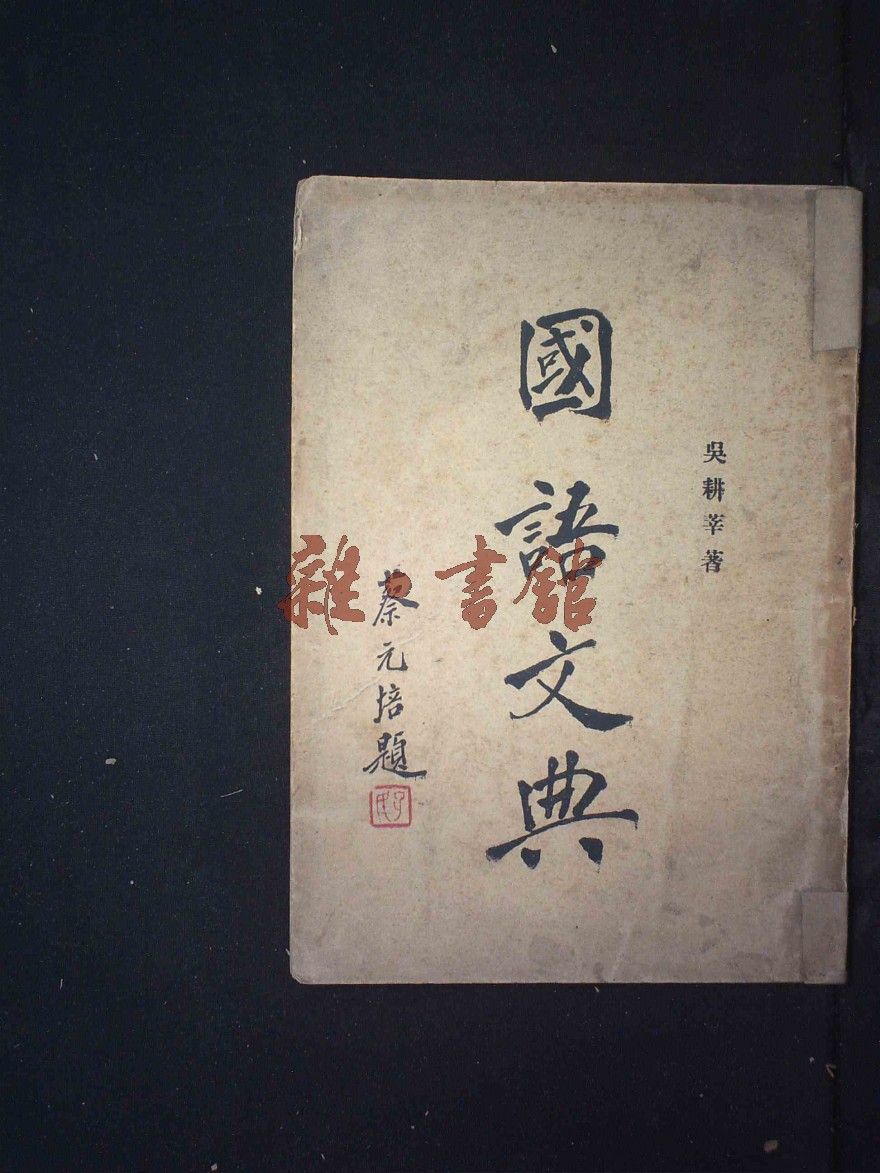 吳耕莘著
國語文典
蔡元培題
雜书館